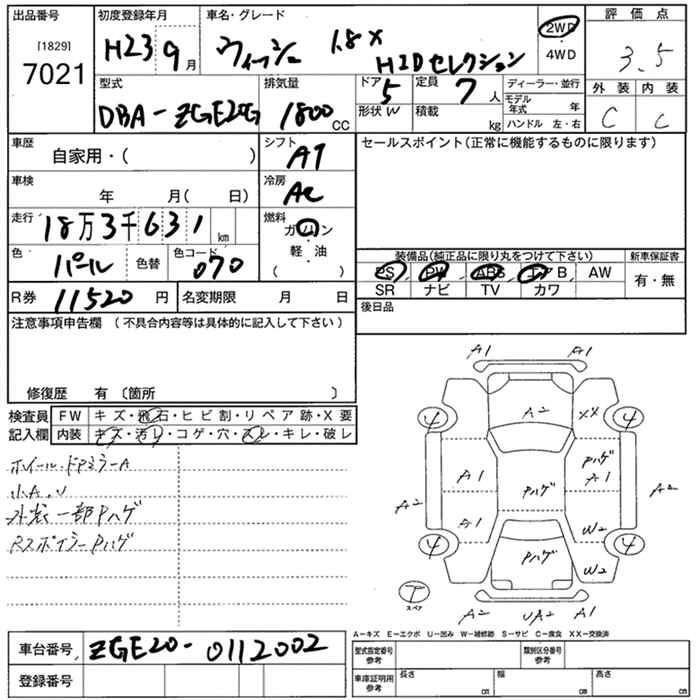 出品番号 初度登録年月 車名・グレード 評価点
[1829]
7021
H23 9月 ウィッシュ 1.8X HIDセレクション
2WD
4WD
3.5
型式 排気量 ドア 定員 ディーラー・並行 外装 内装
DBA-ZGE20G 1800CC 5 7人
モデル年式 年
C C
形状 W 積載 kg ハンドル 左・右
車歴 シフト セールスポイント(正常に機能するものに限ります)
自家用・( ) AT
車検 冷房
年 月( 日) AC
走行 燃料
18万3千631km ガソリン
軽・油
( )
色 色替 色コード
パール 070
装備品(純正品に限り丸をつけて下さい) 新車保証書
PS PW ABS エアB AW 有・無
SR ナビ TV カワ
R券 11520円 名変期限 月 日
後日品
注意事項申告欄 (不具合内容等は具体的に記入して下さい)
修復歴 有 〔箇所 〕
検査員 FW キズ・飛石・ヒビ割・リペア跡・X要
記入欄 内装 キズ・汚レ・コゲ・穴・スレ・キレ・破レ
ホイール・ドアミラーA
小A.U
外装一部Pハゲ
RスポイラーPハゲ
A1 A1
A2 XX
4 4
A1 Pハゲ Pハゲ
A1
A2 A2
A1 W2
4 4
Pハゲ W2
T
スペア
A2 UA2 A1
A−キズ E−エクボ U−凹み W−補修跡 S−サビ C−腐食 XX−交換済
車台番号 ZGE20-0112002
型式指定番号 参考 類別区分番号 参考
登録番号
車庫証明用 参考 長さ cm 幅 cm 高さ cm